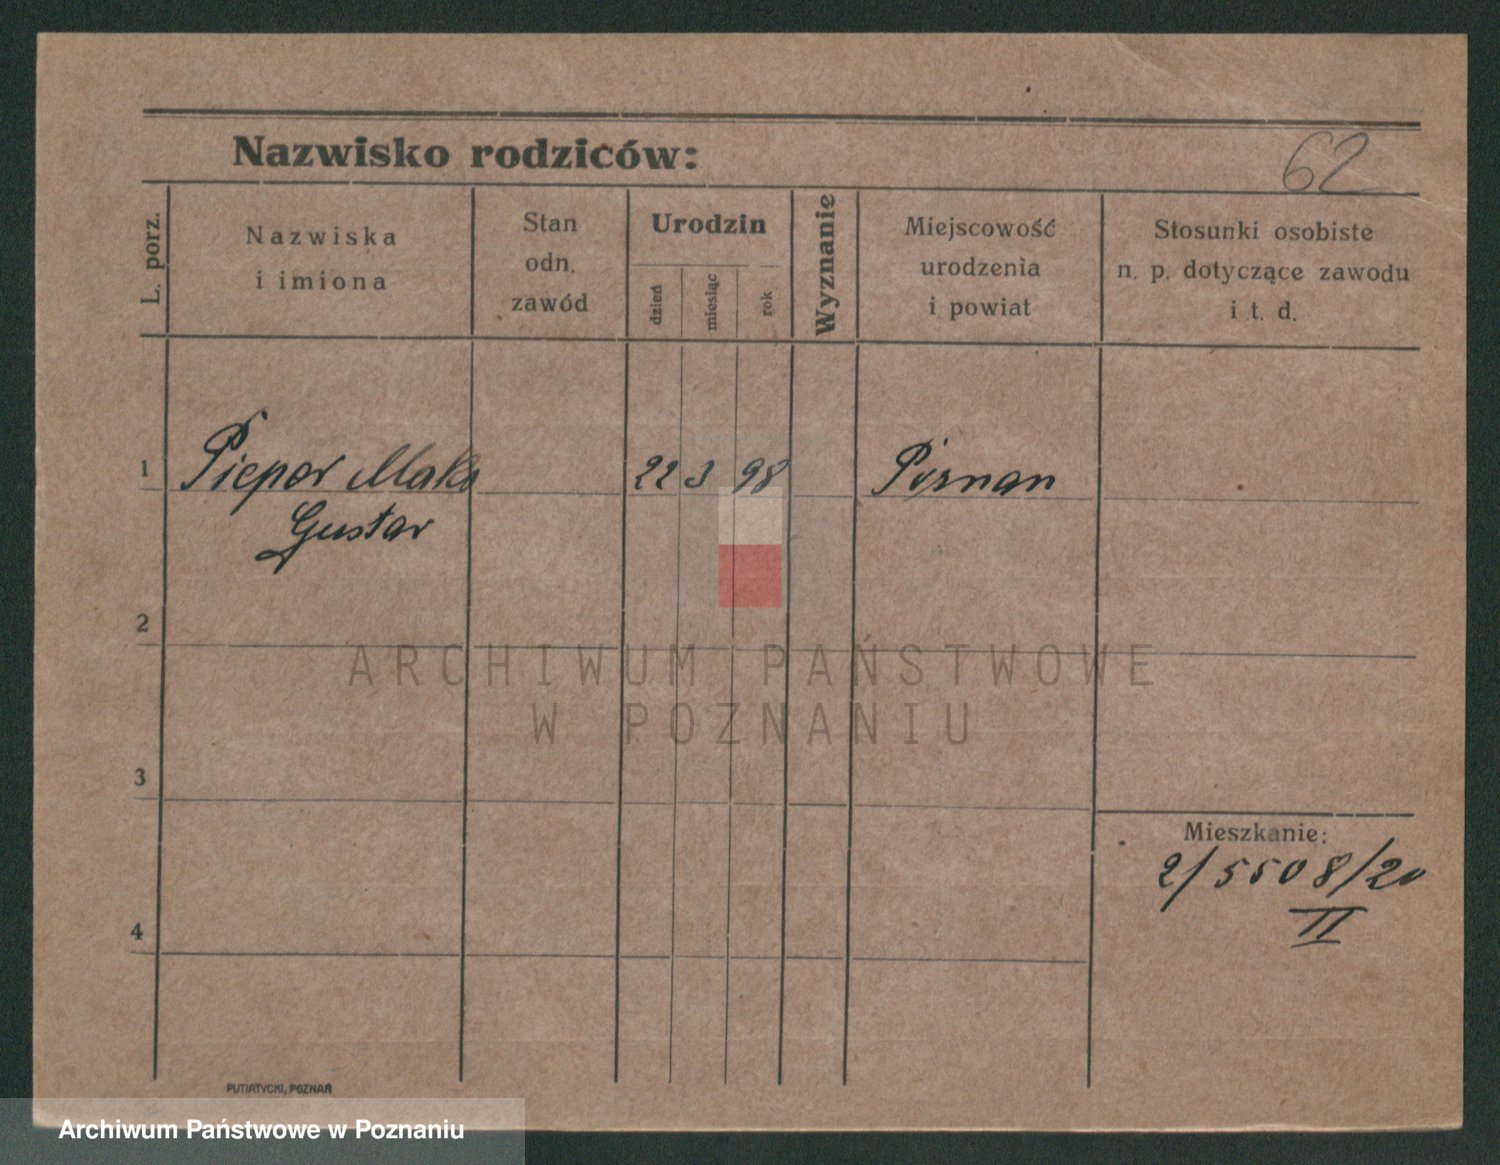 62
Nazwisko rodziców:
L. porz.
Nazwiska
i imiona
Stan
odn.
zawód
Urodzin
dzień
miesiąc
rok
Wyznanie
Miejscowość
urodzenia
i powiat
Stosunki osobiste
n. p. dotyczące zawodu
i t. d.
1 Pieper Maks 22 3 98 Poznan
Gustav
2
3
4
Mieszkanie:
2/5508/20
II
ARCHIWUM PAŃSTWOWE
W POZNANIU
PUTIATYCKI, POZNAŃ
Archiwum Państwowe w Poznaniu